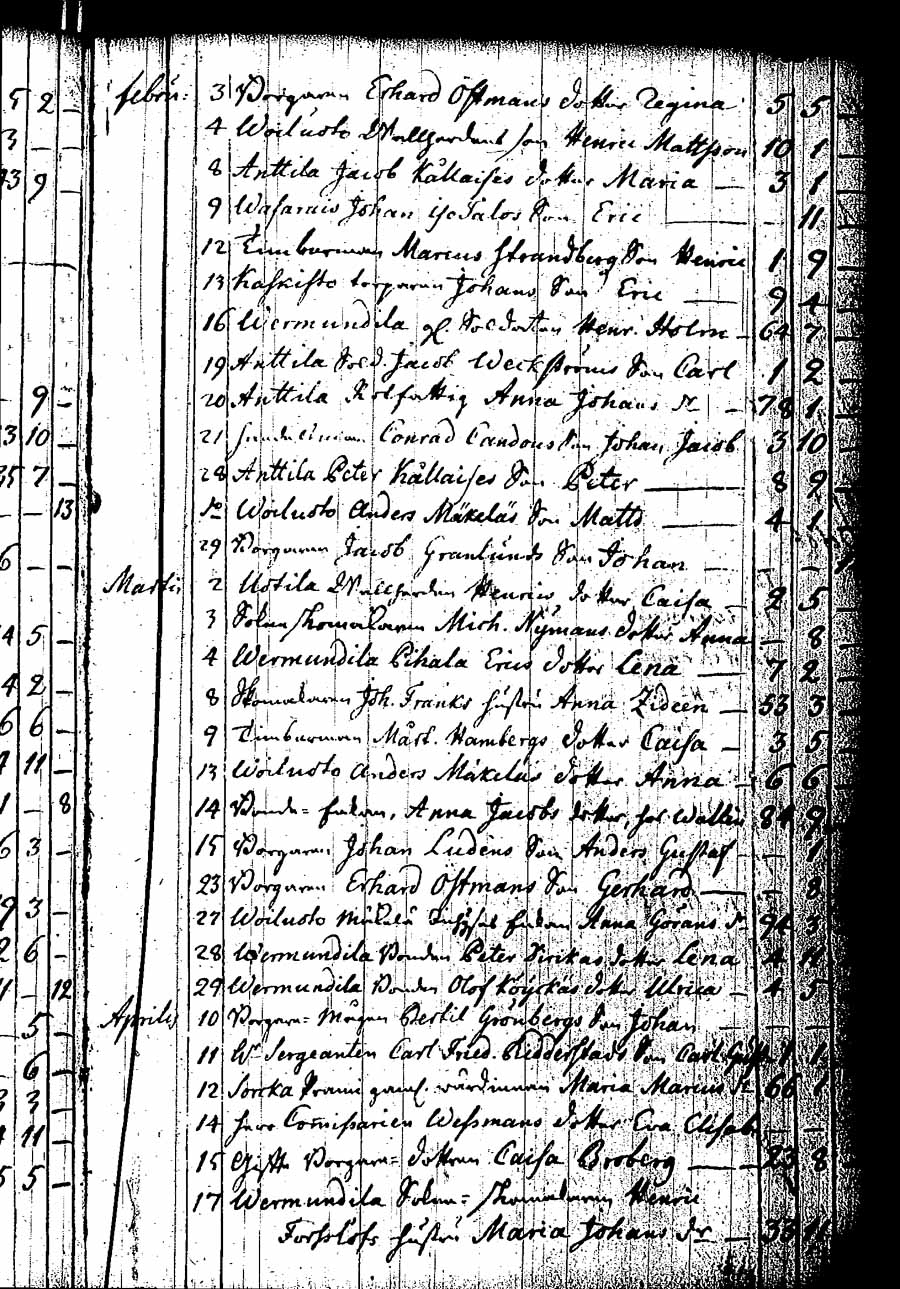 5 2 - febru: 3 Borgaren Erhard Östmans dotter Regina 5 5
3 - - 4 Woiluoto son Henric Mattsson 10 1
13 9 - 8 Anttila Jacob Kållaises dotter Maria - 3 1
9 Wasarais Johan Isotalos Son Eric - 11
12 Timberman Marcus Strandberg Son Henric 1 9
13 Kaskisto torparen Johans Son Eric - 9 4
16 Wermundila gl. Soldaten Henr. Holm - 64 7
19 Anttila Sold. Jacob Weckströms Son Carl 1 2
- 9 - 20 Anttila Anna Johans dr - 78 1
3 10 - 21 Conrad Candous Son Johan Jacob 3 10
35 7 - 28 Anttila Peter Kållaises Son Peter - 8 9
- - 13 do Woiluoto Anders Mäkeläs Son Matts - 4 1
6 - - 29 Borgaren Jacob Granlunds Son Johan - - -
Martii 2 Uotila Henrics dotter Caisa - 2 5
4 5 - 3 Sokn skomakaren Mich. Nymans dotter Anna - 8
4 Wermundila Pihala Erics dotter Lena - 7 2
4 2 - 8 Skomakaren Joh. Franks hustru Anna Zideen - 53 3
6 6 - 9 Timberman Mårt. Hambergs dotter Caisa - 3 5
11 - 13 Woiluoto Anders Mäkeläs dotter Anna - 6 6
1 - 8 14 Bonde= Enkan, Anna Jacobs dotter, hos Wallin 84 9
6 3 - 15 Borgaren Johan Ludens Son Anders Gustaf - 1
23 Borgaren Erhard Östmans Son Gerhard - 8
9 3 - 27 Woiluoto Mäkelä Enkan Anna Görans dr 94 3
2 6 - 28 Wermundila Bonden Peter Sirikas dotter Lena 4 11
1 - 12 29 Wermundila Bonden Olof Köyckäs dotter Ulrica - 4 5
5 - Aprilis 10 Borgare= Mågen Bertil Grönbergs Son Johan - - -
6 - 11 Hr Sergeanten Carl Fried. Ridderstads Son Carl Gust. 1 1
3 3 - 12 Sorcka gaml. wärdinnan Maria Marcus dr 66 1
11 - 14 Herr Comissarien Wessmans dotter Eva Elisab. - -
5 5 - 15 Gifta Borgare= dottren Caisa Broberg - 23 8
17 Wermundila Sokne= Skomakaren Henric
Forsslöfs hustru Maria Johans dr - 33 11